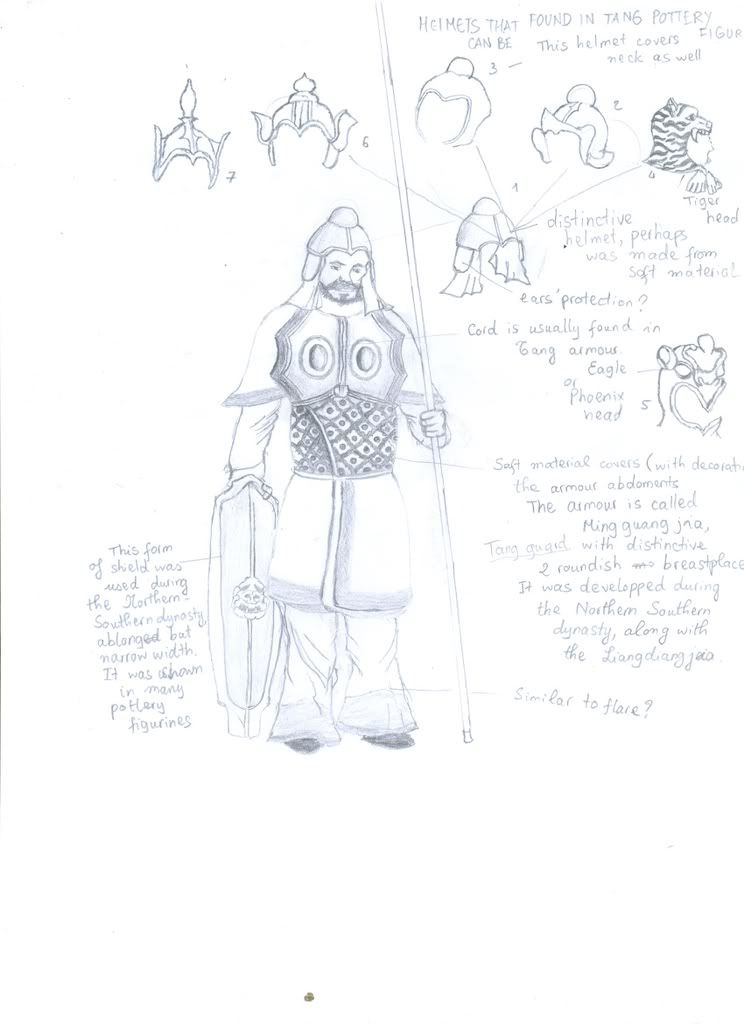 HELMETS THAT FOUND IN TANG POTTERY
CAN BE
FIGUR
This helmet covers
neck as well
3
2
1
4
6
7
Tiger
head
distinctive
helmet, perhaps
was made from
soft material
ears' protection?
Cord is usually found in
Tang armour.
Eagle
or
Phoenix
head
5
Soft material covers (with decorati
the armour abdoments
The armour is called
Ming guang jia,
Tang guard with distinctive
2 roundish breastplace
It was developped during
the Northern Southern
dynasty, along with
the Liangdiang jaia.
This form
of shield was
used during
the Northern-
Southern dynasty,
ablonged but
narrow width.
It was shown
in many
pottery
figurines
Similar to flare?